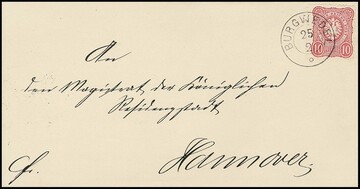 BURGWEDEL
25
9
10 10
An
den Magistrat der Königlichen
Residenzstadt
Hannover.
Fr.